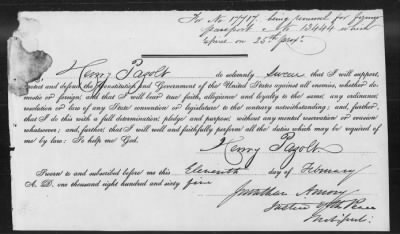 For No 17717, being renewal for former
passport No 12444 which
expire on 25th prox.
I, Henry Pagolt do solemnly swear that I will support,
protect and defend the Constitution and Government of the United States against all enemies, whether do-
mestic or foreign; and that I will bear true faith, allegiance and loyalty to the same, any ordinance,
resolution or law of any State convention or legislature to the contrary notwithstanding; and further,
that I do this with a full determination, pledge and purpose, without any mental reservation or evasion
whatsoever; and further, that I will well and faithfully perform all the duties which may be required of
me by law: So help me God.
Henry Pagolt
Sworn to and subscribed before me this Eleventh day of February
A. D. one thousand eight hundred and sixty five
Jonathan Amory
Justice of the Peace